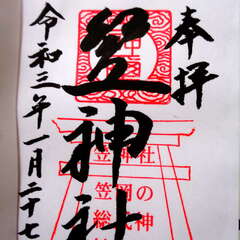 奉拝
笠神社
令和三年一月二十七
笠神社
笠岡の